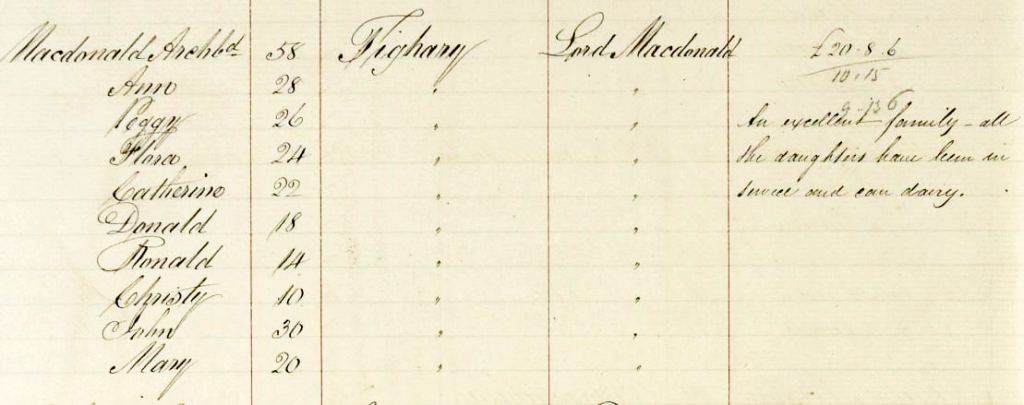 Macdonald Archbd 58 Tighary Lord Macdonald £20.8.6
Ann 28 " " 10.15
9.13 6
Peggy 26 " " An excellent family - all
Flora 24 " " the daughters have been in
Catherine 22 " " service and can dairy.
Donald 18 " "
Ronald 14 " "
Christy 10 " "
John 30 " "
Mary 20 " "